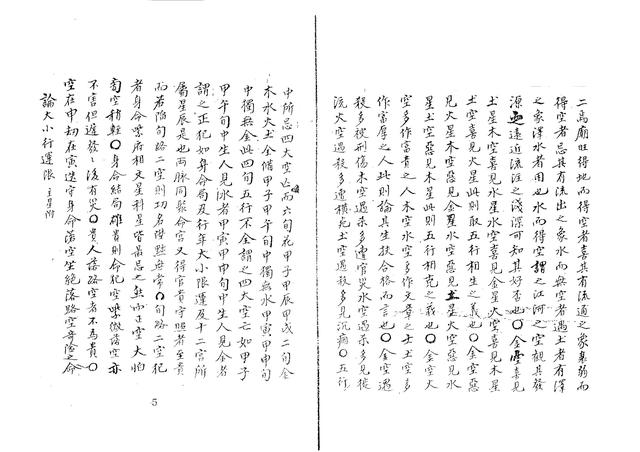 二局廟旺得地而得空者喜其有流通之象集弱而
得空者忌其有流出之象水而無空者遇土者有澤
之象澤水者困也水而得空謂之江河之空觀其發
源遠近流注之淺深可知其好否也〇金空喜見
土星木空喜見水星水空喜見金星火空喜見木星
土空喜見火星此則取五行相生之義也〇金空惡
見火星木空惡見金星水空惡見土星火空惡見水
星土空惡見木星此則五行相剋之義也〇金空火
空多作富貴之人木空水空多作文章之士土空多
作富厚之人此則論其生扶合格而言也〇金空遇
殺多被刑傷木空遇殺多遭官災水空遇殺多見
流火空遇殺多遭横死土空遇殺多見沉痼〇五行
中所忌四大空亡而六旬花甲子甲辰甲戌二旬金
木水火土全備甲子甲午旬中獨無水甲寅甲申旬
中獨無金此四旬五行不全謂之四大空亡如甲子
甲午旬中生人見水者甲寅甲申旬中生人見金者
謂之正犯如身命局及行年大小限運及十二宮所
屬星辰是也兩脈同鬃命宮又得官貴守照者至貴
而若陷旬路二空則功名陞黜無常〇旬路二空犯
者身命紫府相文星科星皆最忌之無亦正空大怕
旬空稍輕〇身命結局雄貴則命犯空紫微落空亦
不害但遲發遲後有災〇貴人落路空者不為貴〇
空在申劫在寅逆守身命落空坐絕落路空奇險之命
論大小行運限 主星附
5